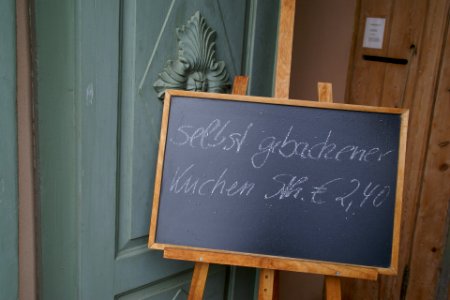 selbst gebackener
Kuchen € 2,40